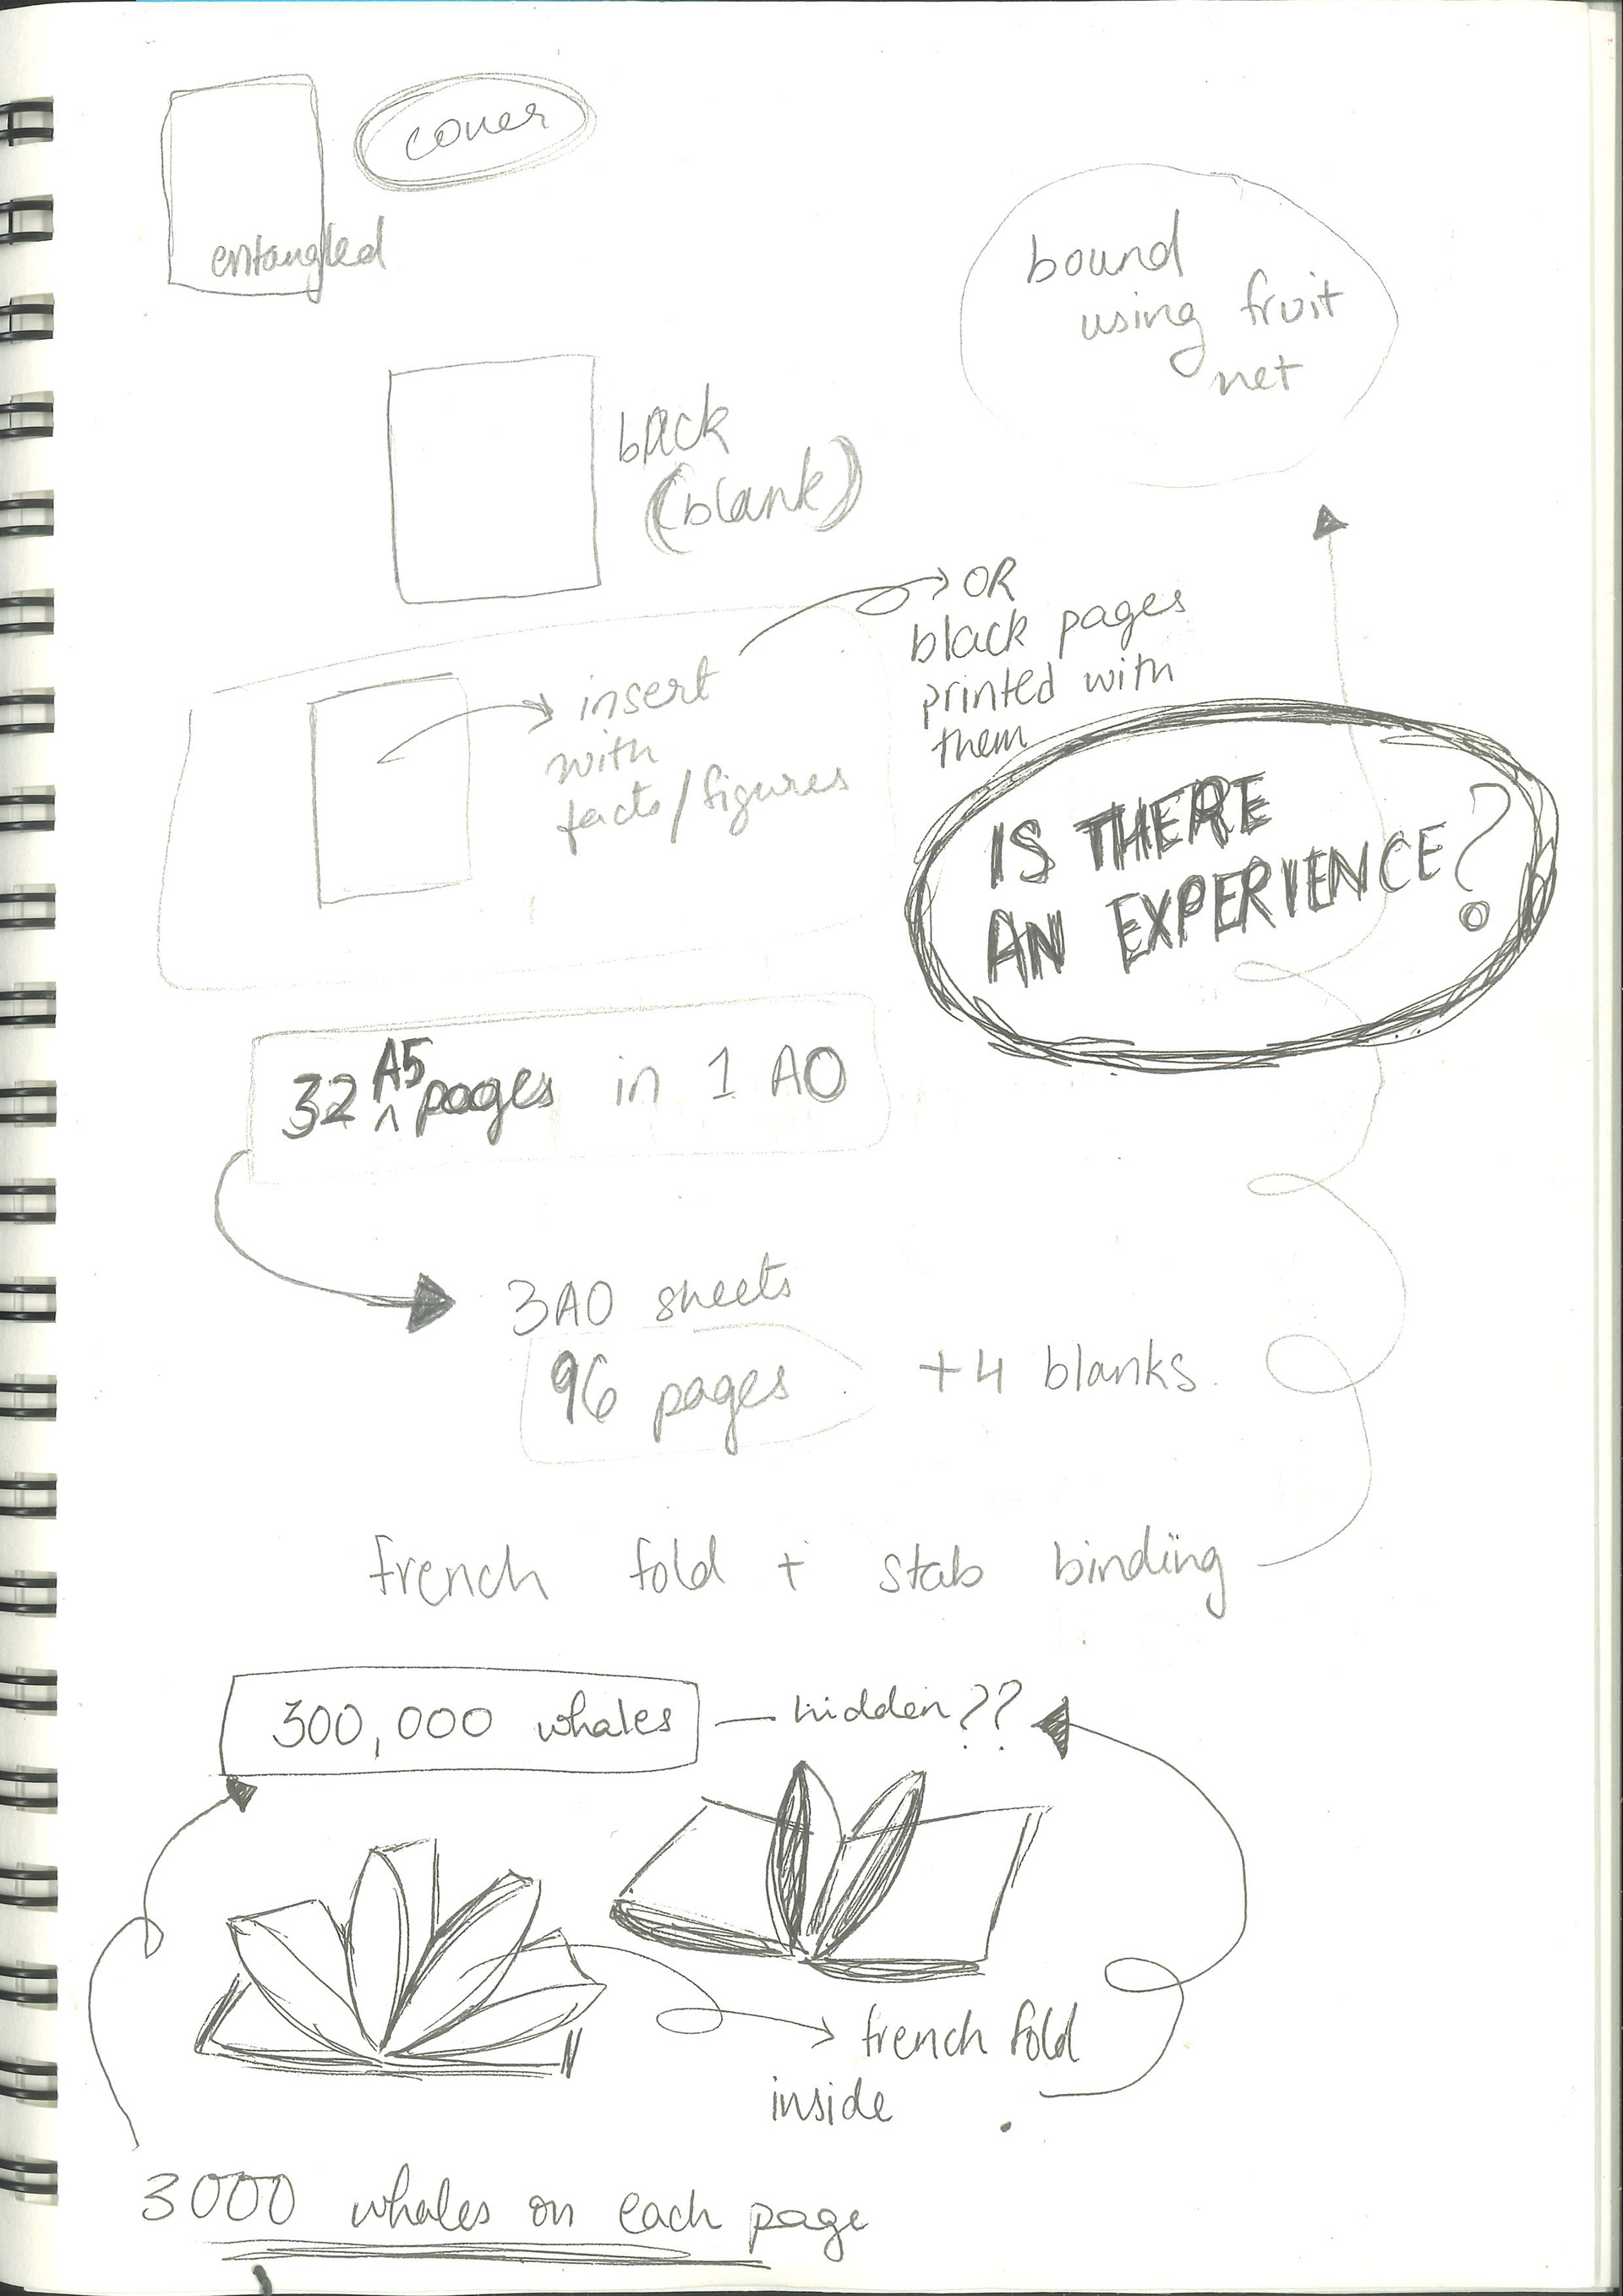 cover
entangled
bound
using fruit
net
back
(blank)
OR
black pages
printed with
them
insert
with
facts/figures
IS THERE
AN EXPERIENCE?
32 A5 pages in 1 A0
3A0 sheets
96 pages + 4 blanks
french fold + stab binding
300,000 whales — hidden??
french fold
inside
3000 whales on each page